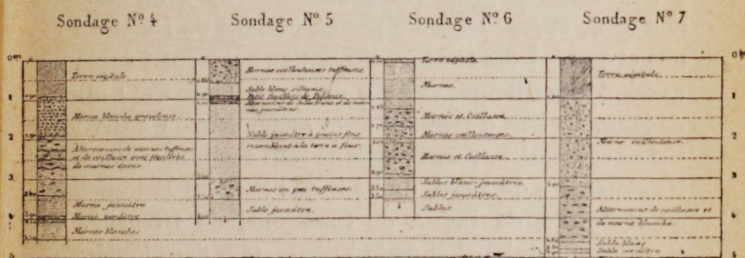 Sondage Nº 4
Sondage Nº 5
Sondage Nº 6
Sondage Nº 7
0
1
2
3
4
Terre végétale
Marne blanche graveleuse
Alternances de marnes tuffeuses
et de caillasse avec feuillets
de marnes dures
Marne jaunâtre
Marne verdâtre
Marnes blanches
Marnes caillouteuses tuffeuses
Sable blanc siliceux
Sable jaunâtre à grains fins
ressemblant à la terre à four
Marnes un peu tuffeuses
Sable jaunâtre
Terre végétale
Marnes
Marnes et Caillasse
Marnes caillouteuses
Marnes et Caillasse
Sables blanc-jaunâtre
Sables jaunâtres
Sables
Terre végétale
Marne caillouteuse
Alternances de caillasse et
de marne blanche
Sable blanc
Sable verdâtre